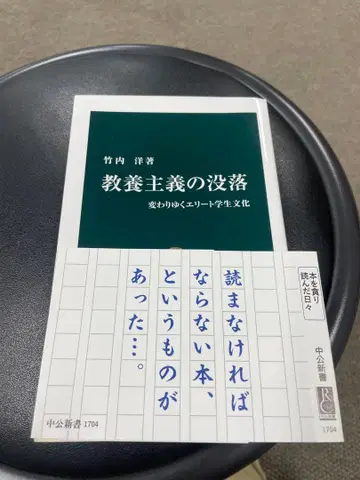 竹内 洋著
教養主義の没落
変わりゆくエリート学生文化
読まなければ
ならない本、
というものが
あった…。
本を貪り
読んだ日々
中公新書
1704
中公新書 1704